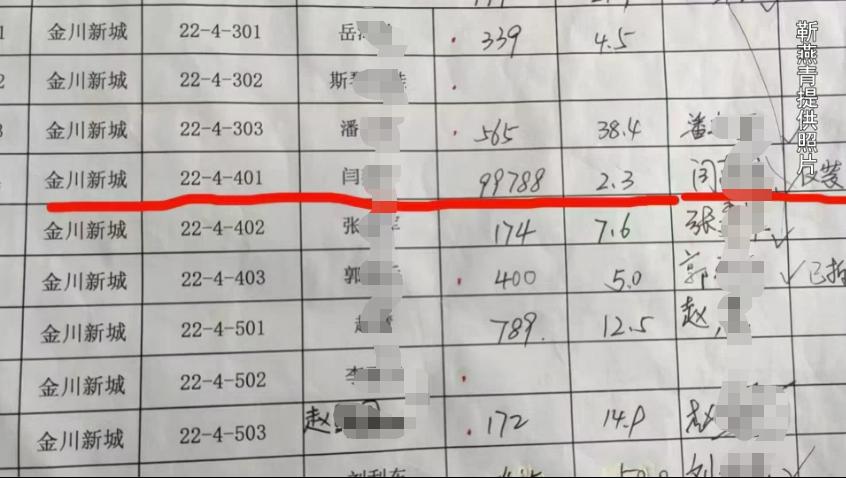 金川新城 22-4-301 岳 339 4.5
金川新城 22-4-302 斯
金川新城 22-4-303 潘 565 38.4 潘
金川新城 22-4-401 闫 99788 2.3 闫
金川新城 22-4-402 张 174 7.6 张
金川新城 22-4-403 郭 400 5.0 郭
金川新城 22-4-501 赵 789. 12.5 赵
金川新城 22-4-502 李
金川新城 22-4-503 赵 172 14.9 赵
刘利东 刘
靳燕青提供照片